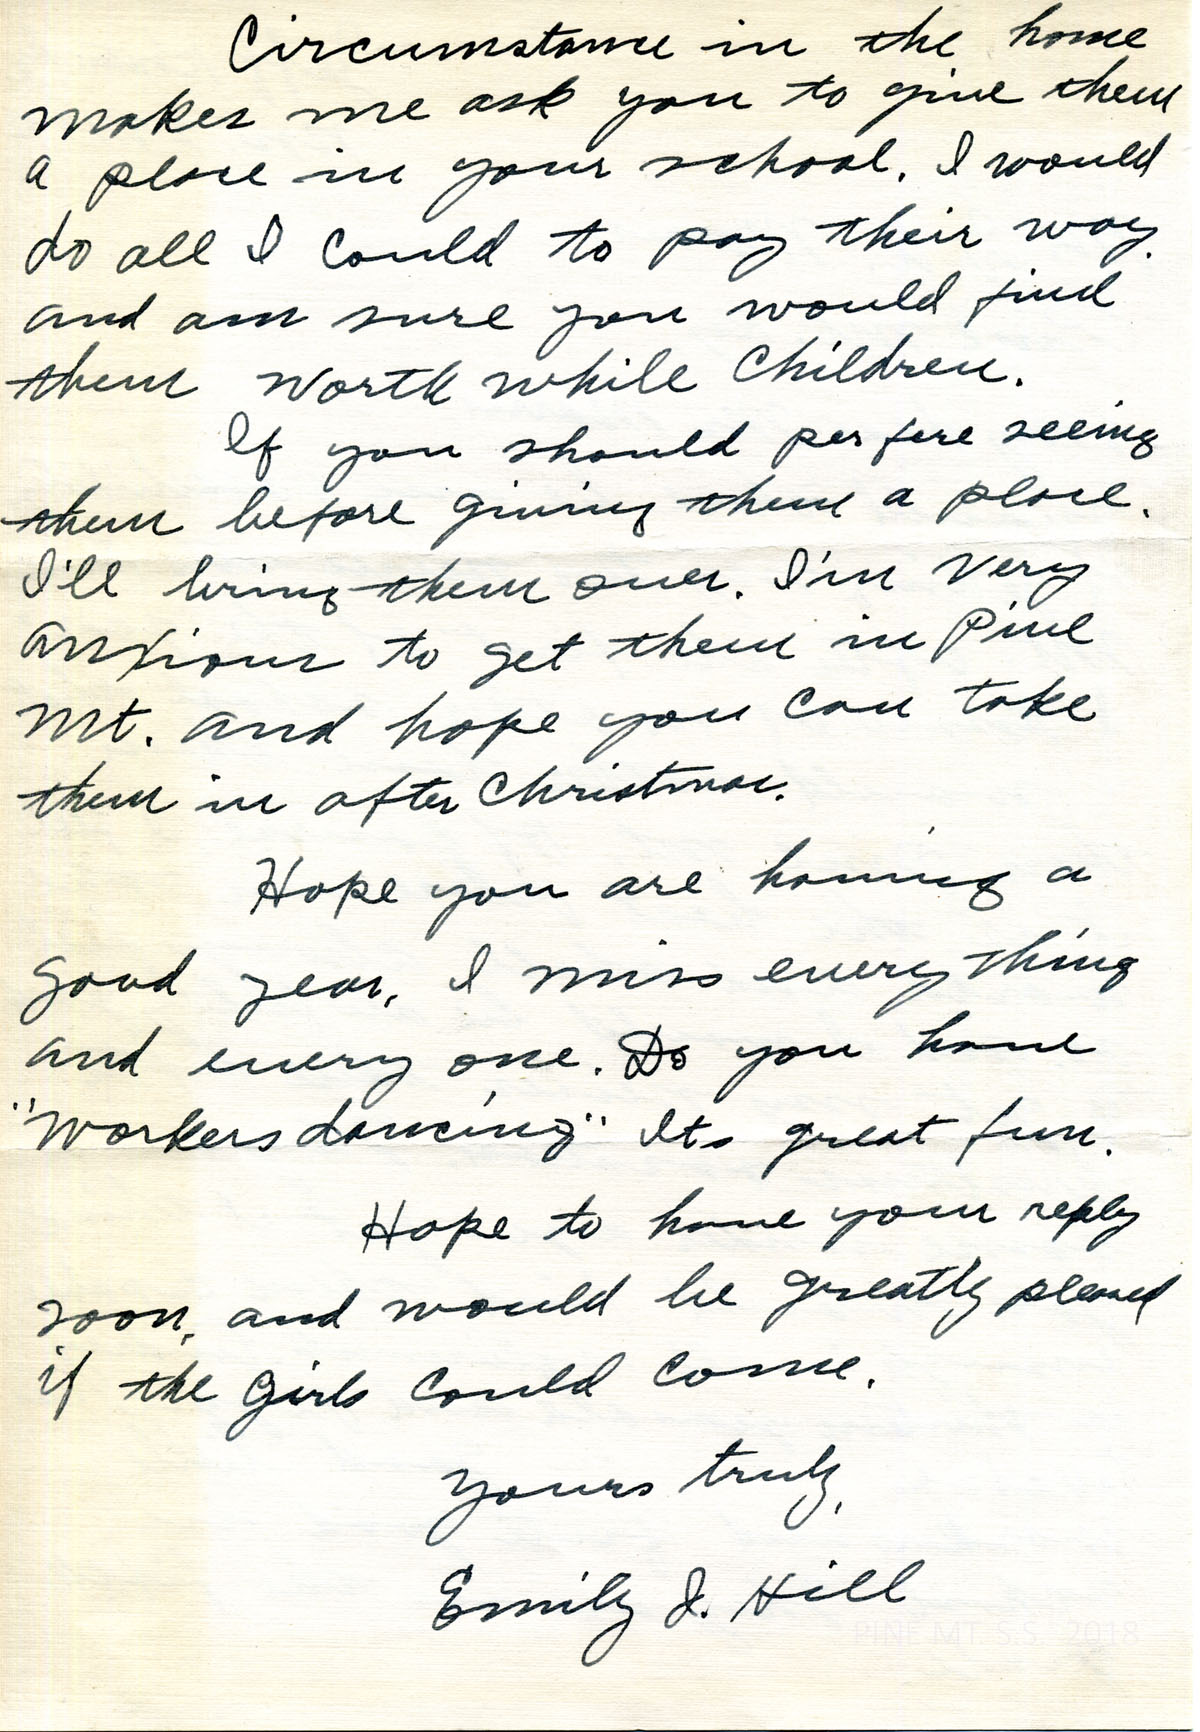 Circumstance in the home
makes me ask you to give them
a place in your school. I would
do all I could to pay their way
and am sure you would find
them worth while children.
If you should perfere seeing
them before giving them a place.
I'll bring them over. I'm very
anxious to get them in Pine
Mt. and hope you can take
them in after Christmas.
Hope you are having a
good year, I miss everything
and every one. Do you have
"Workers dancing" Its great fun.
Hope to have your reply
soon, and would be greatly pleased
if the girls could come.
Yours truly,
Emily J. Hill
PINE MT. S.S. 2018